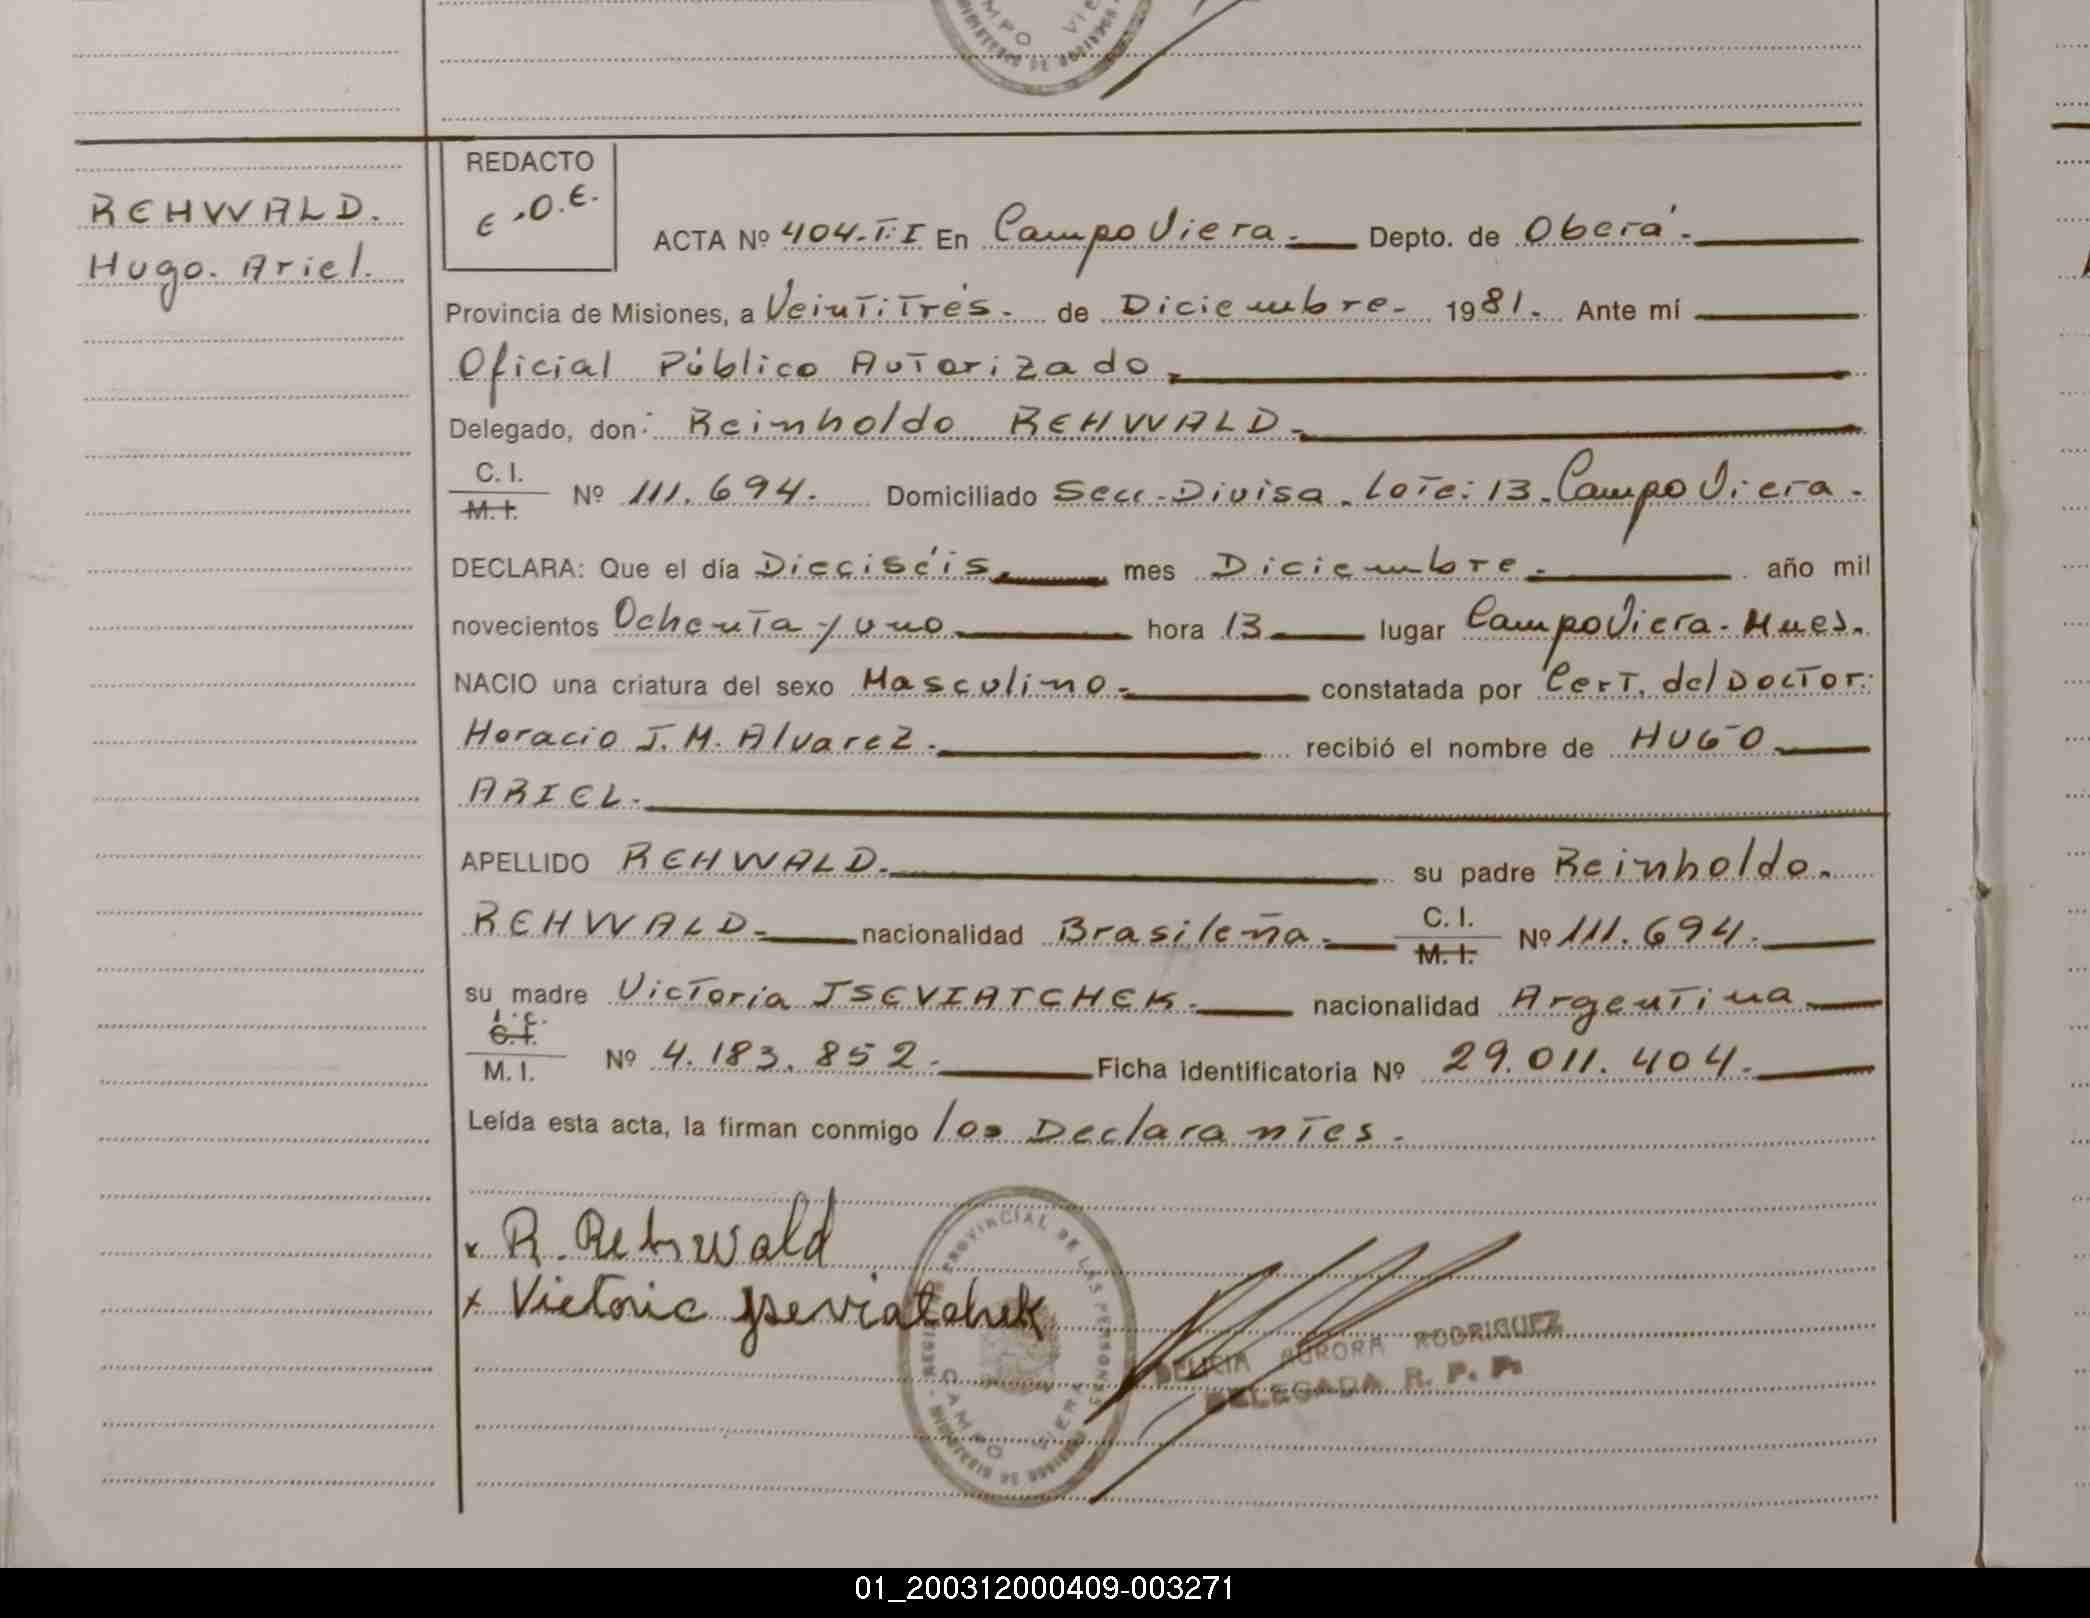 REHWALD.
Hugo. Ariel.
REDACTO
E.O.E.
ACTA Nº 404.T:I En Campo Viera. Depto. de Oberá.
Provincia de Misiones, a Veintitrés. de Diciembre. 1981. Ante mí
Oficial Público Autorizado.
Delegado, don: Reinholdo REHWALD.
C. I.
M. I. Nº 111.694. Domiciliado Secc. Divisa. Lote: 13. Campo Viera.
DECLARA: Que el día Dieciséis. mes Diciembre. año mil
novecientos Ochenta y uno hora 13 lugar Campo Viera. Mnes.
NACIO una criatura del sexo Masculino. constatada por Cert. del Doctor:
Horacio J. M. Alvarez. recibió el nombre de HUGO
ARIEL.
APELLIDO REHWALD. su padre Reinholdo.
REHWALD. nacionalidad Brasileña. C. I.
M. I. Nº 111.694.
su madre Victoria JSEVIATCHEK. nacionalidad Argentina
C. I.
M. I. Nº 4.183.852. Ficha identificatoria Nº 29.011.404.
Leída esta acta, la firman conmigo los Declarantes.
x R. Rehwald
x Victoria Jseviatchek
PROVINCIAL DE LAS PERSONAS
CAMPO VIERA
AURORA RODRIGUEZ
DELEGADA R. P. P.
01_200312000409-003271